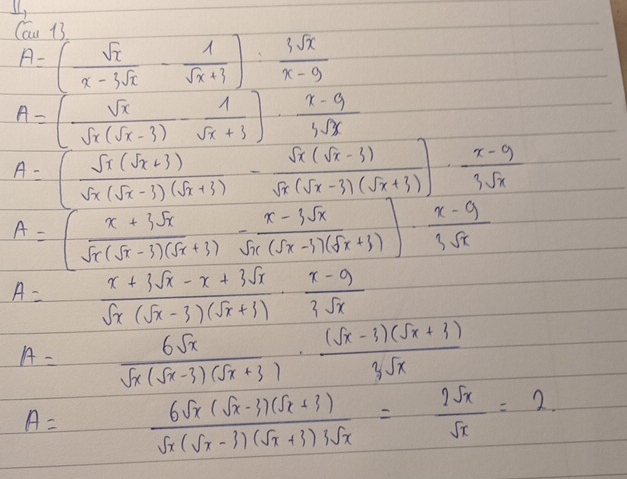 II,
Câu 13.
A = [ √x / (x - 3√x) - 1 / (√x + 3) ] : 3√x / (x - 9)
A = [ √x / (√x(√x - 3)) - 1 / (√x + 3) ] · (x - 9) / (3√x)
A = [ √x(√x + 3) / (√x(√x - 3)(√x + 3)) - √x(√x - 3) / (√x(√x - 3)(√x + 3)) ] · (x - 9) / (3√x)
A = [ (x + 3√x) / (√x(√x - 3)(√x + 3)) - (x - 3√x) / (√x(√x - 3)(√x + 3)) ] · (x - 9) / (3√x)
A = (x + 3√x - x + 3√x) / (√x(√x - 3)(√x + 3)) · (x - 9) / (3√x)
A = 6√x / (√x(√x - 3)(√x + 3)) · (√x - 3)(√x + 3) / (3√x)
A = 6√x(√x - 3)(√x + 3) / (√x(√x - 3)(√x + 3)3√x) = 2√x / √x = 2.